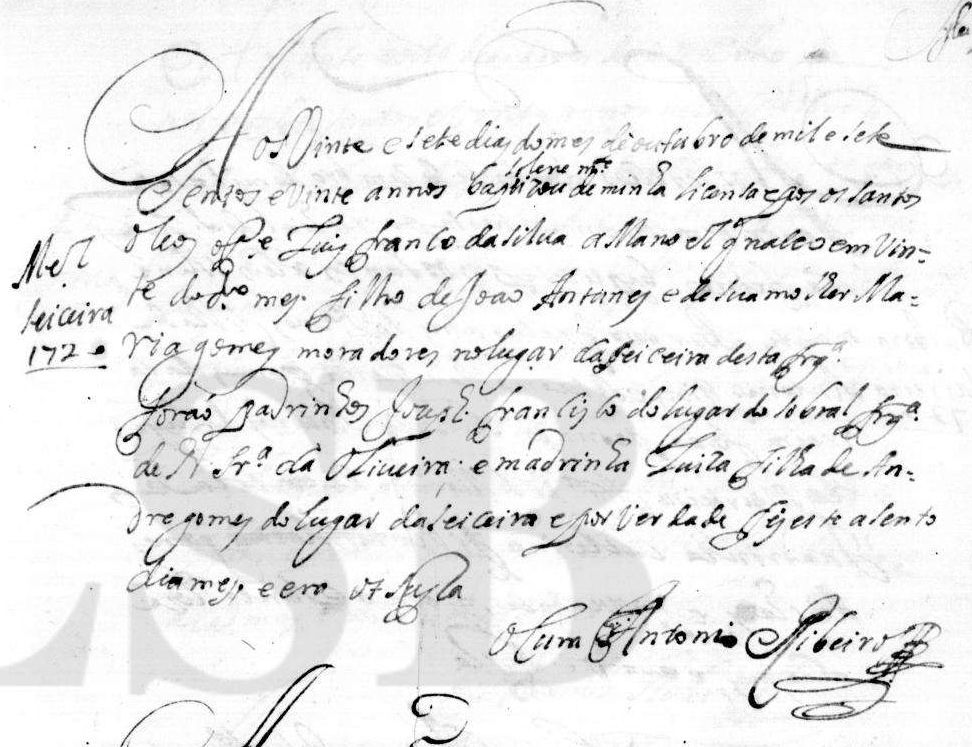 Aos Vinte e sete dias do mes de outubro de mil e sete
sentos e vinte annos baptizou solene mte de minha licensa e pos os santos
oleos o Pe Luis franco da silua a Manoel q naceo em Vin-
te do do mes. filho de Joao Antunes e de sua molher Ma-
ria gomes moradores no lugar da seiceira desta frga.
forão padrinhos Joseph francisco do lugar do sobral frga.
de N. Sra. da Oliueira e madrinha Luiza filha de An-
dre gomes do lugar da seiceira e por Verdade fis este asento
dia mes e era ut supra
O Cura Antonio Ribeiro
Mel
seiceira
1720
LSB